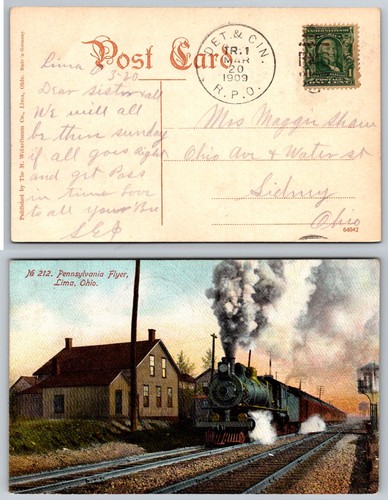 Post Card
DET. & CIN.
TR.1
MAR
20
1909
R.P.O.
Lima
3-20
Dear sister & all
We will all
be thin sunday
if all goes right
and get Pass
in time love
to all your Bro
Mrs Maggie Shaw
Ohio Ave & Water st
Sidney
Ohio
64042
Published by The M. Weixelbaum Co., Lima, Ohio. Made in Germany
№ 212. Pennsylvania Flyer,
Lima, Ohio.